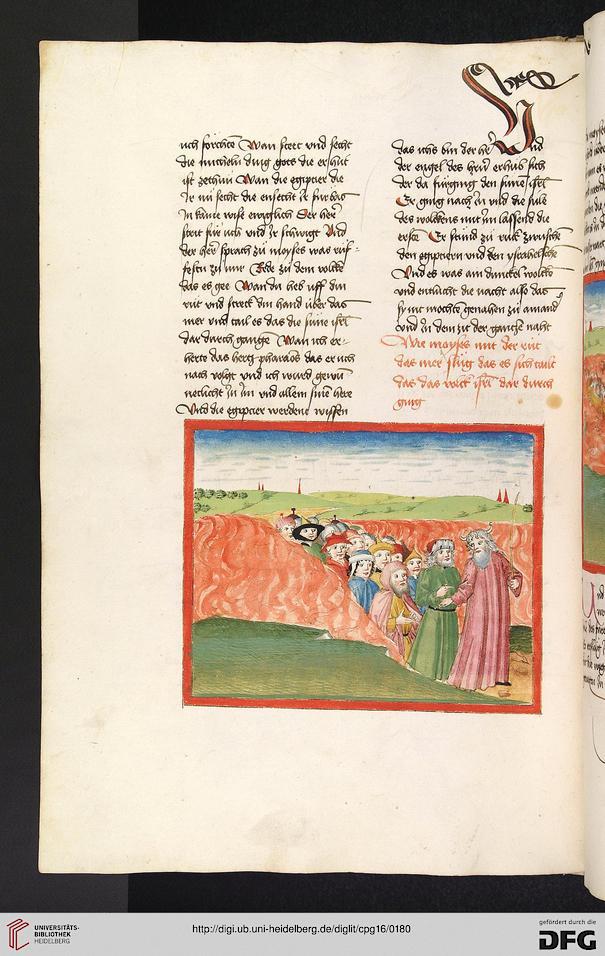 uch förchte Wan steet und secht
die michelň ding gots die er hüt
ist zethun Wan die egipcier die
Ir nu secht die ensecht Ir fürbas
In kainr wise ewiglich Der here
streit für uch und Ir schwigt Und
der here sprach zü moyses was rüf-
festu zü mir Rede zü dem volcke
das es gee Wan du heb uff din
rüt und streck din hand über das
mer und tail es das die süne isrl
dar durch gangen Wan ich er-
herte das hertz pharaos das er uch
nach volgt und ich wurd
In im und allem sinē here
Und die egipcier werdent wissen
das ichs bin der here Und
der engel des herrn erhub sich
der da fürging den sunen isrl
Er ging nach In und die sule
des wolckens mit im lassend die
erste Er stund zü rück zwüschē
den egiptiern und den ysrahelschē
Und es was ain dunckel wolck
und entlucht die nacht also das
sy nit mochten genahen zü ainand
und In dem zit der gantzen naht
Wie moyses mit der rüt
das mer slüg das es sich tailt
das das volck isrl dar durch
ging
UNIVERSITÄTS-
BIBLIOTHEK
HEIDELBERG
http://digi.ub.uni-heidelberg.de/diglit/cpg16/0180
gefördert durch die
DFG